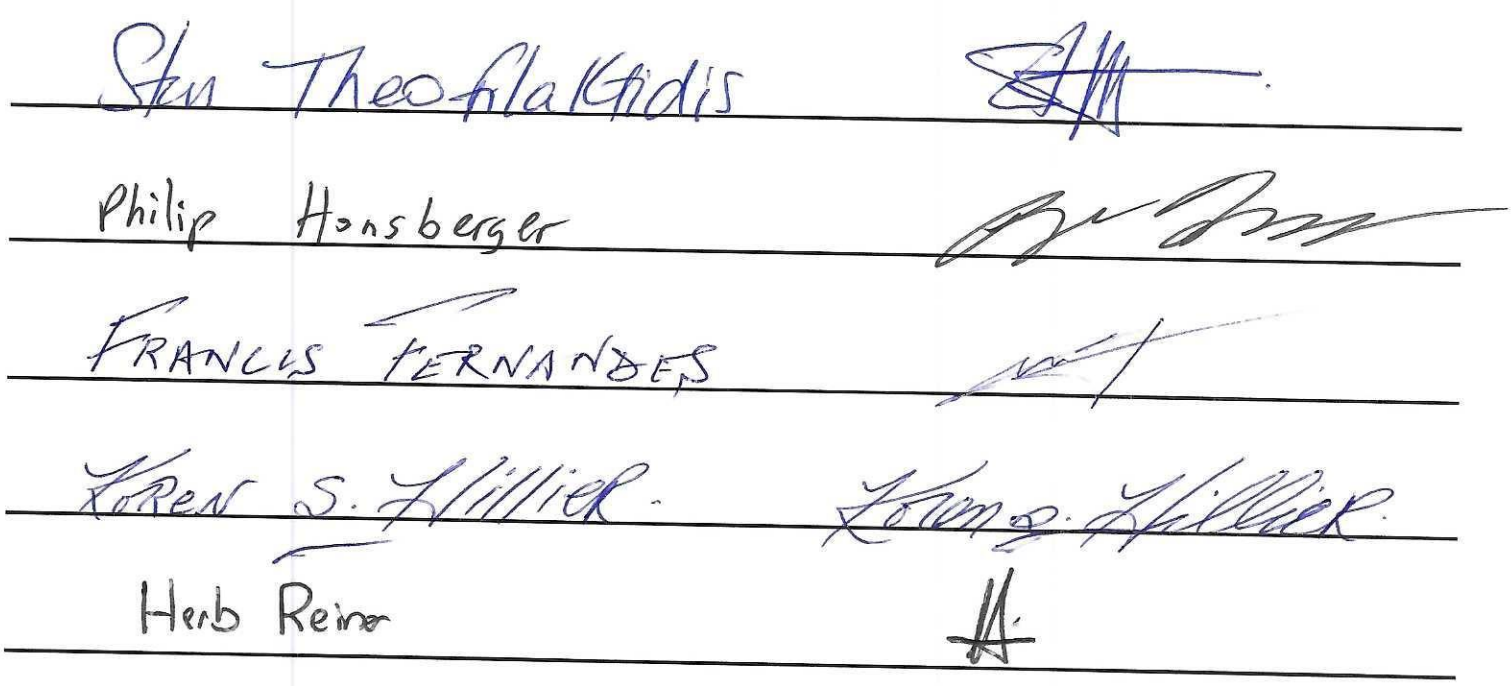 Stan Theofilaktidis
Philip Honsberger
FRANCIS FERNANDES
KOREN S. HillieR. Koren S. HillieR.
Herb Reiner H.